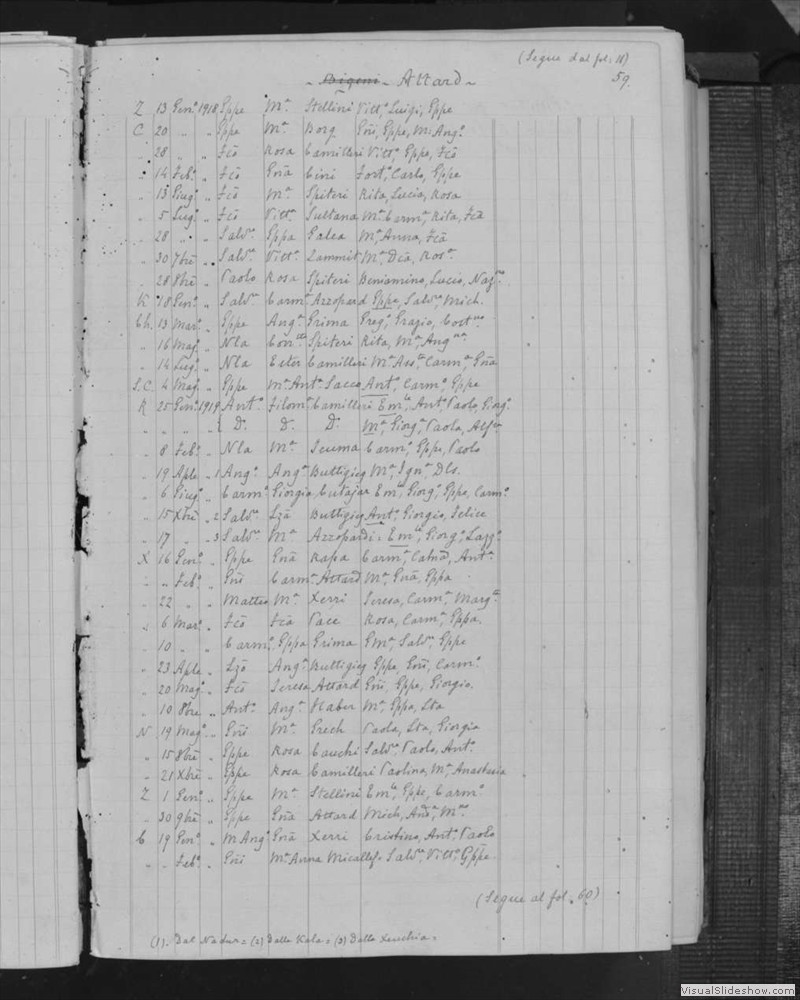 (Segue dal fol. 18)
59.
Bigeni - Attard
Z 13 Genº 1918 Eppe Mª Stellini Vittª, Luigi, Eppe
C 20 " " Eppe Mª Borg Gnī, Eppe, M. Angª
" 28 " " Fcō Rosa Camilleri Vittª, Eppe, Fcō
" 14 Febº " Fcō Gnā Cini Fortª, Carlo, Eppe
" 13 Giugº " Fcō Mª Spiteri Rita, Lucia, Rosa
" 5 Lugº " Fcō Vittª Sultana Mª Carmª, Rita, Fcā
" 28 " " Salvº Eppa Galea Mª, Anna, Fcā
" 30 7bre " Salvº Vittª Zammit Mª, Dcā, Rosª
" 28 8bre " Paolo Rosa Spiteri Beniamino, Lucio,
K 18 Genº " Salvº Carmª Azzopard Eppe, Salvº, Mich.
Ch. 13 Marº " Eppe Angª Grima Gregº, Grazio,
" 16 Magº " Nla Spiteri Rita, Mª, Angª
" 14 Lugº " Nla Ester Camilleri Mª Assª, Carmª, Gnā
S.C. 4 Magº " Eppe Mª Antª Sacco Antª, Carmº, Eppe
K 25 Genº 1919 Antº Filomª Camilleri Emlª, Antª, Paolo, Giorgº
" " " " { D. D. D. Mª, Giorgª, Paola,
" 8 Febº " Nla Mª Scuma Carmº, Eppe, Paolo
" 19 Aple " 1 Angº Angª Buttigieg Mª, Ignª, Dls.
" 6 Giugº " Carmº Giorgia Cutajar Emlª, Giorgº, Eppe, Carmº
" 15 Xbre " 2 Salvº Lzā Buttigieg Antº, Giorgio, Felice
" 17 " " 3 Salvº Mª Azzopardi = Emlº, Giorgº, Lazzº
X 16 Genº " Eppe Gnā Rapa Carmª, Catnā, Antª
" " Febº " Gnī Carmª Attard Mª, Gnā, Eppa
" 22 " " Matteo Mª Xerri Teresa, Carmª, Margª
" 6 Marº " Fcō Fcā Pace Rosa, Carmª, Eppa.
" 10 " " Carmº Eppa Grima Emº, Salvº, Eppe
" 23 Aple " Lzō Angª Buttigieg Eppe, Gnī, Carmº
" 20 Magº " Fcō Teresa Attard Gnī, Eppe, Giorgio.
" 10 8bre " Antº Angª Haber Mª, Eppa, Lta
N 19 Magº " Gnī Mª Grech Paola, Lta, Giorgia
" 15 8bre " Eppe Rosa Cauchi Salvº, Paolo, Antº
" 21 Xbre " Eppe Rosa Camilleri Paolina, Mª, Anastasia
Z 1 Genº " Eppe Mª Stellini Emlº, Eppe, Carmº
" 30 9bre " Eppe Gnā Attard Mich, Andª, Mª
C 19 Genº " M. Angº Gnā Xerri Cristina, Antª, Paola
" " Febº " Gnī Mª Anna Micallef Salvº, Vittº, Eppe
(Segue al fol. 60)
(1). Dal Nadur = (2) Dalla Kala = (3) Dalla Xeuchia =
VisualSlideshow.com